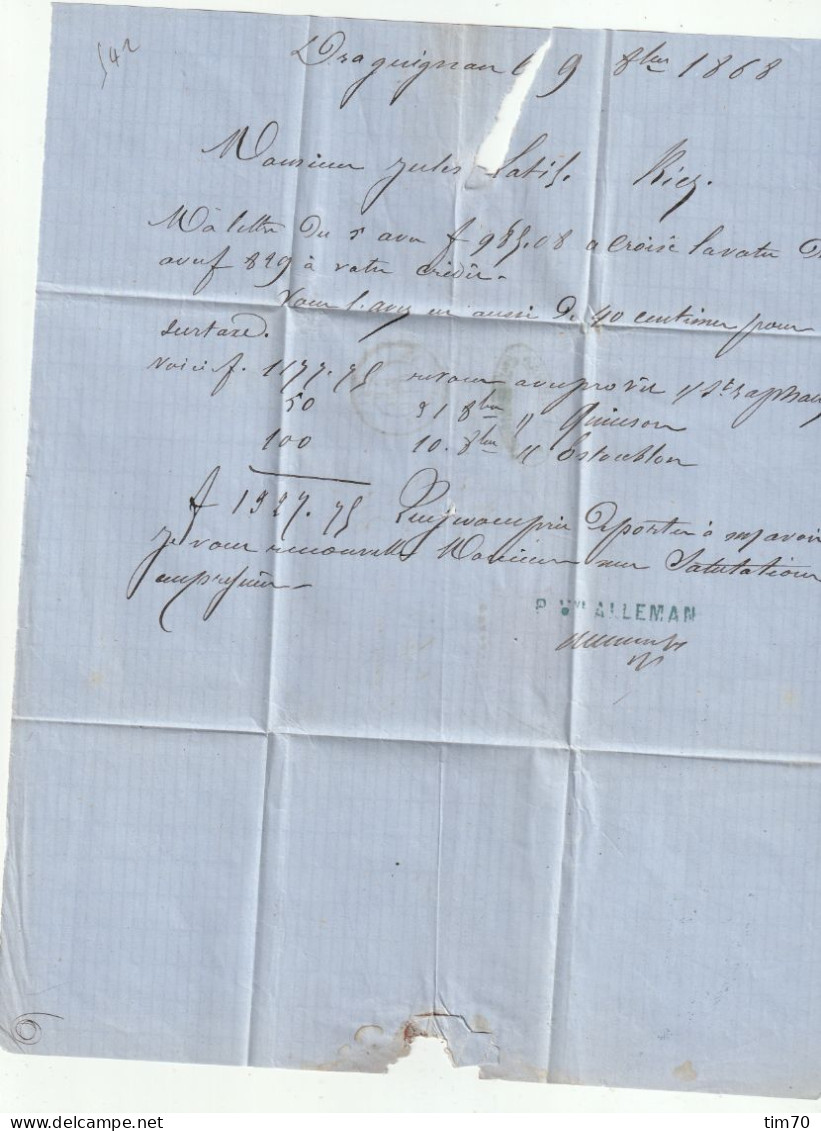 542
Draguignan le 9 8bre 1868
Monsieur Jules Latil. Riez.
Ma lettre du 5 avec f 985.08 a croisé la votre
avec f 829 à votre crédit.
Vous l'avez en aussi de 40 centimes pour
surtaxe.
Voici f. 1177.75 retour avec pro vre // St Raphael
50 31 8bre // Quinson
100 10. 8bre // Estoublon
f 1327.75 porter à mon avoir
je vous renouvelle Monsieur mes Salutations
empressées
P. Vve ALLEMAN
tim70